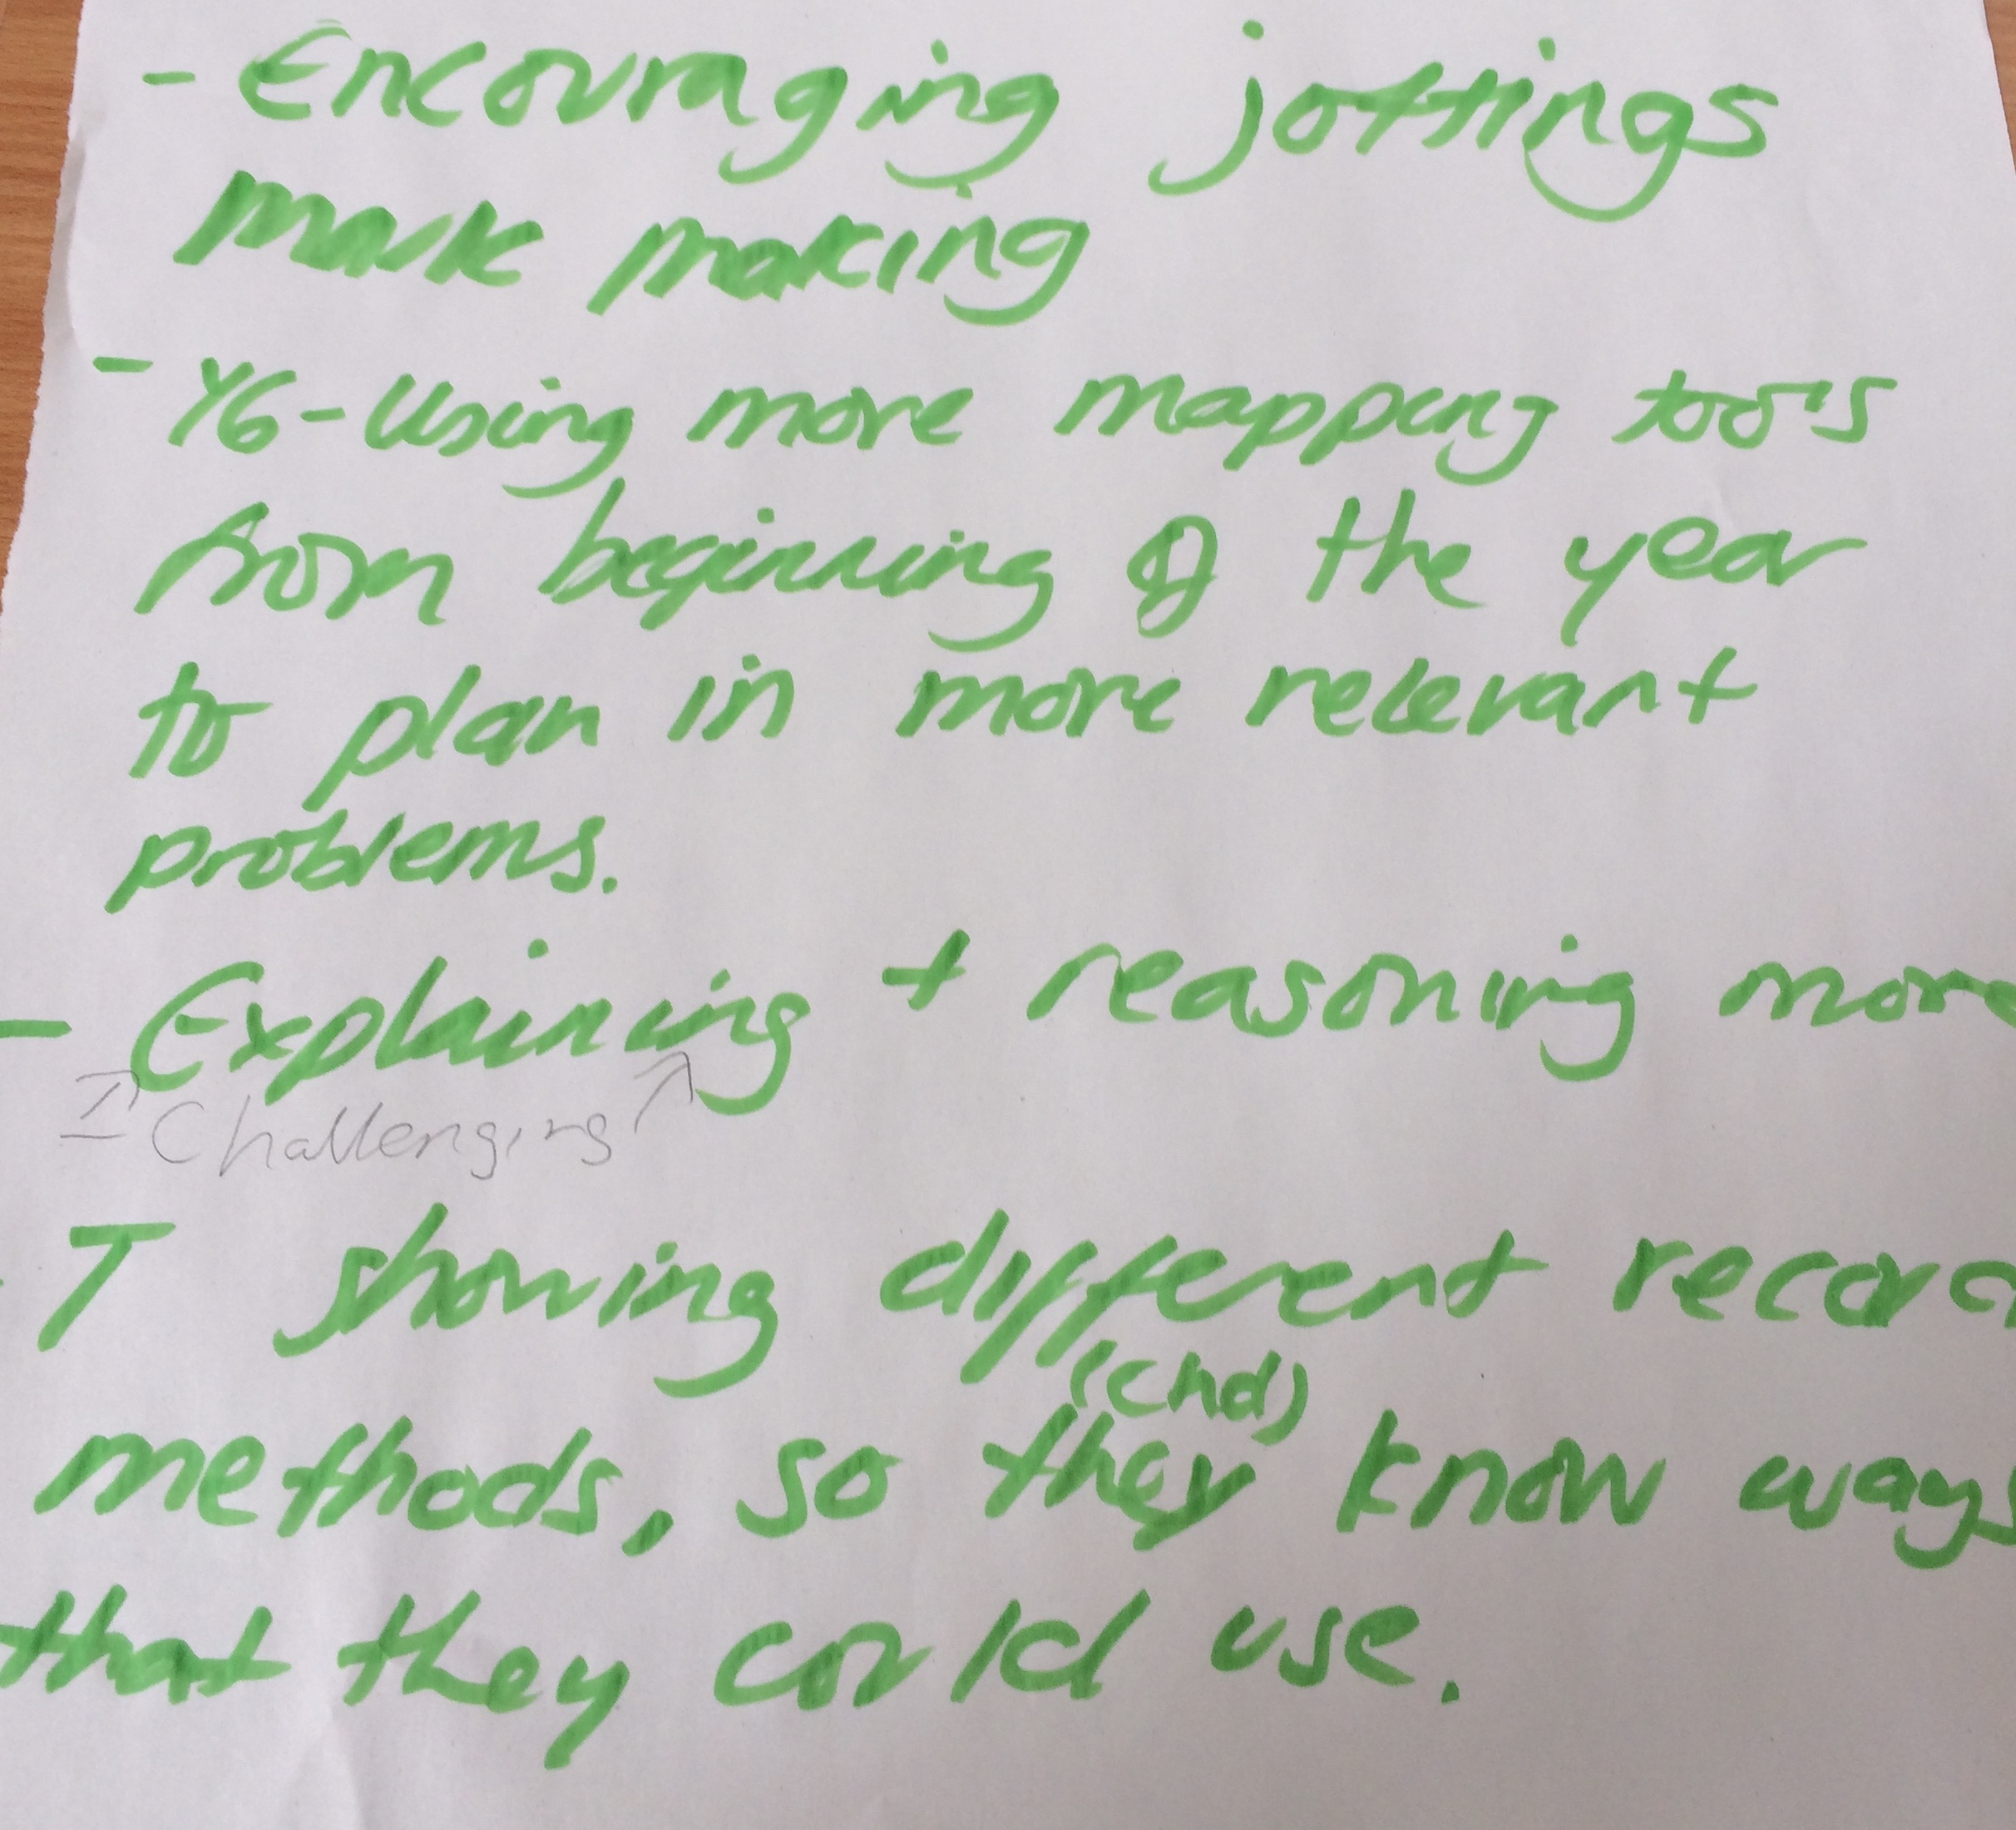 - Encouraging jottings
mark making
- Y6 - Using more mapping tools
from beginning of the year
to plan in more relevant
problems.
- Explaining + reasoning more
Challenging
- T showing different record
(chd)
methods, so they know ways
that they could use.